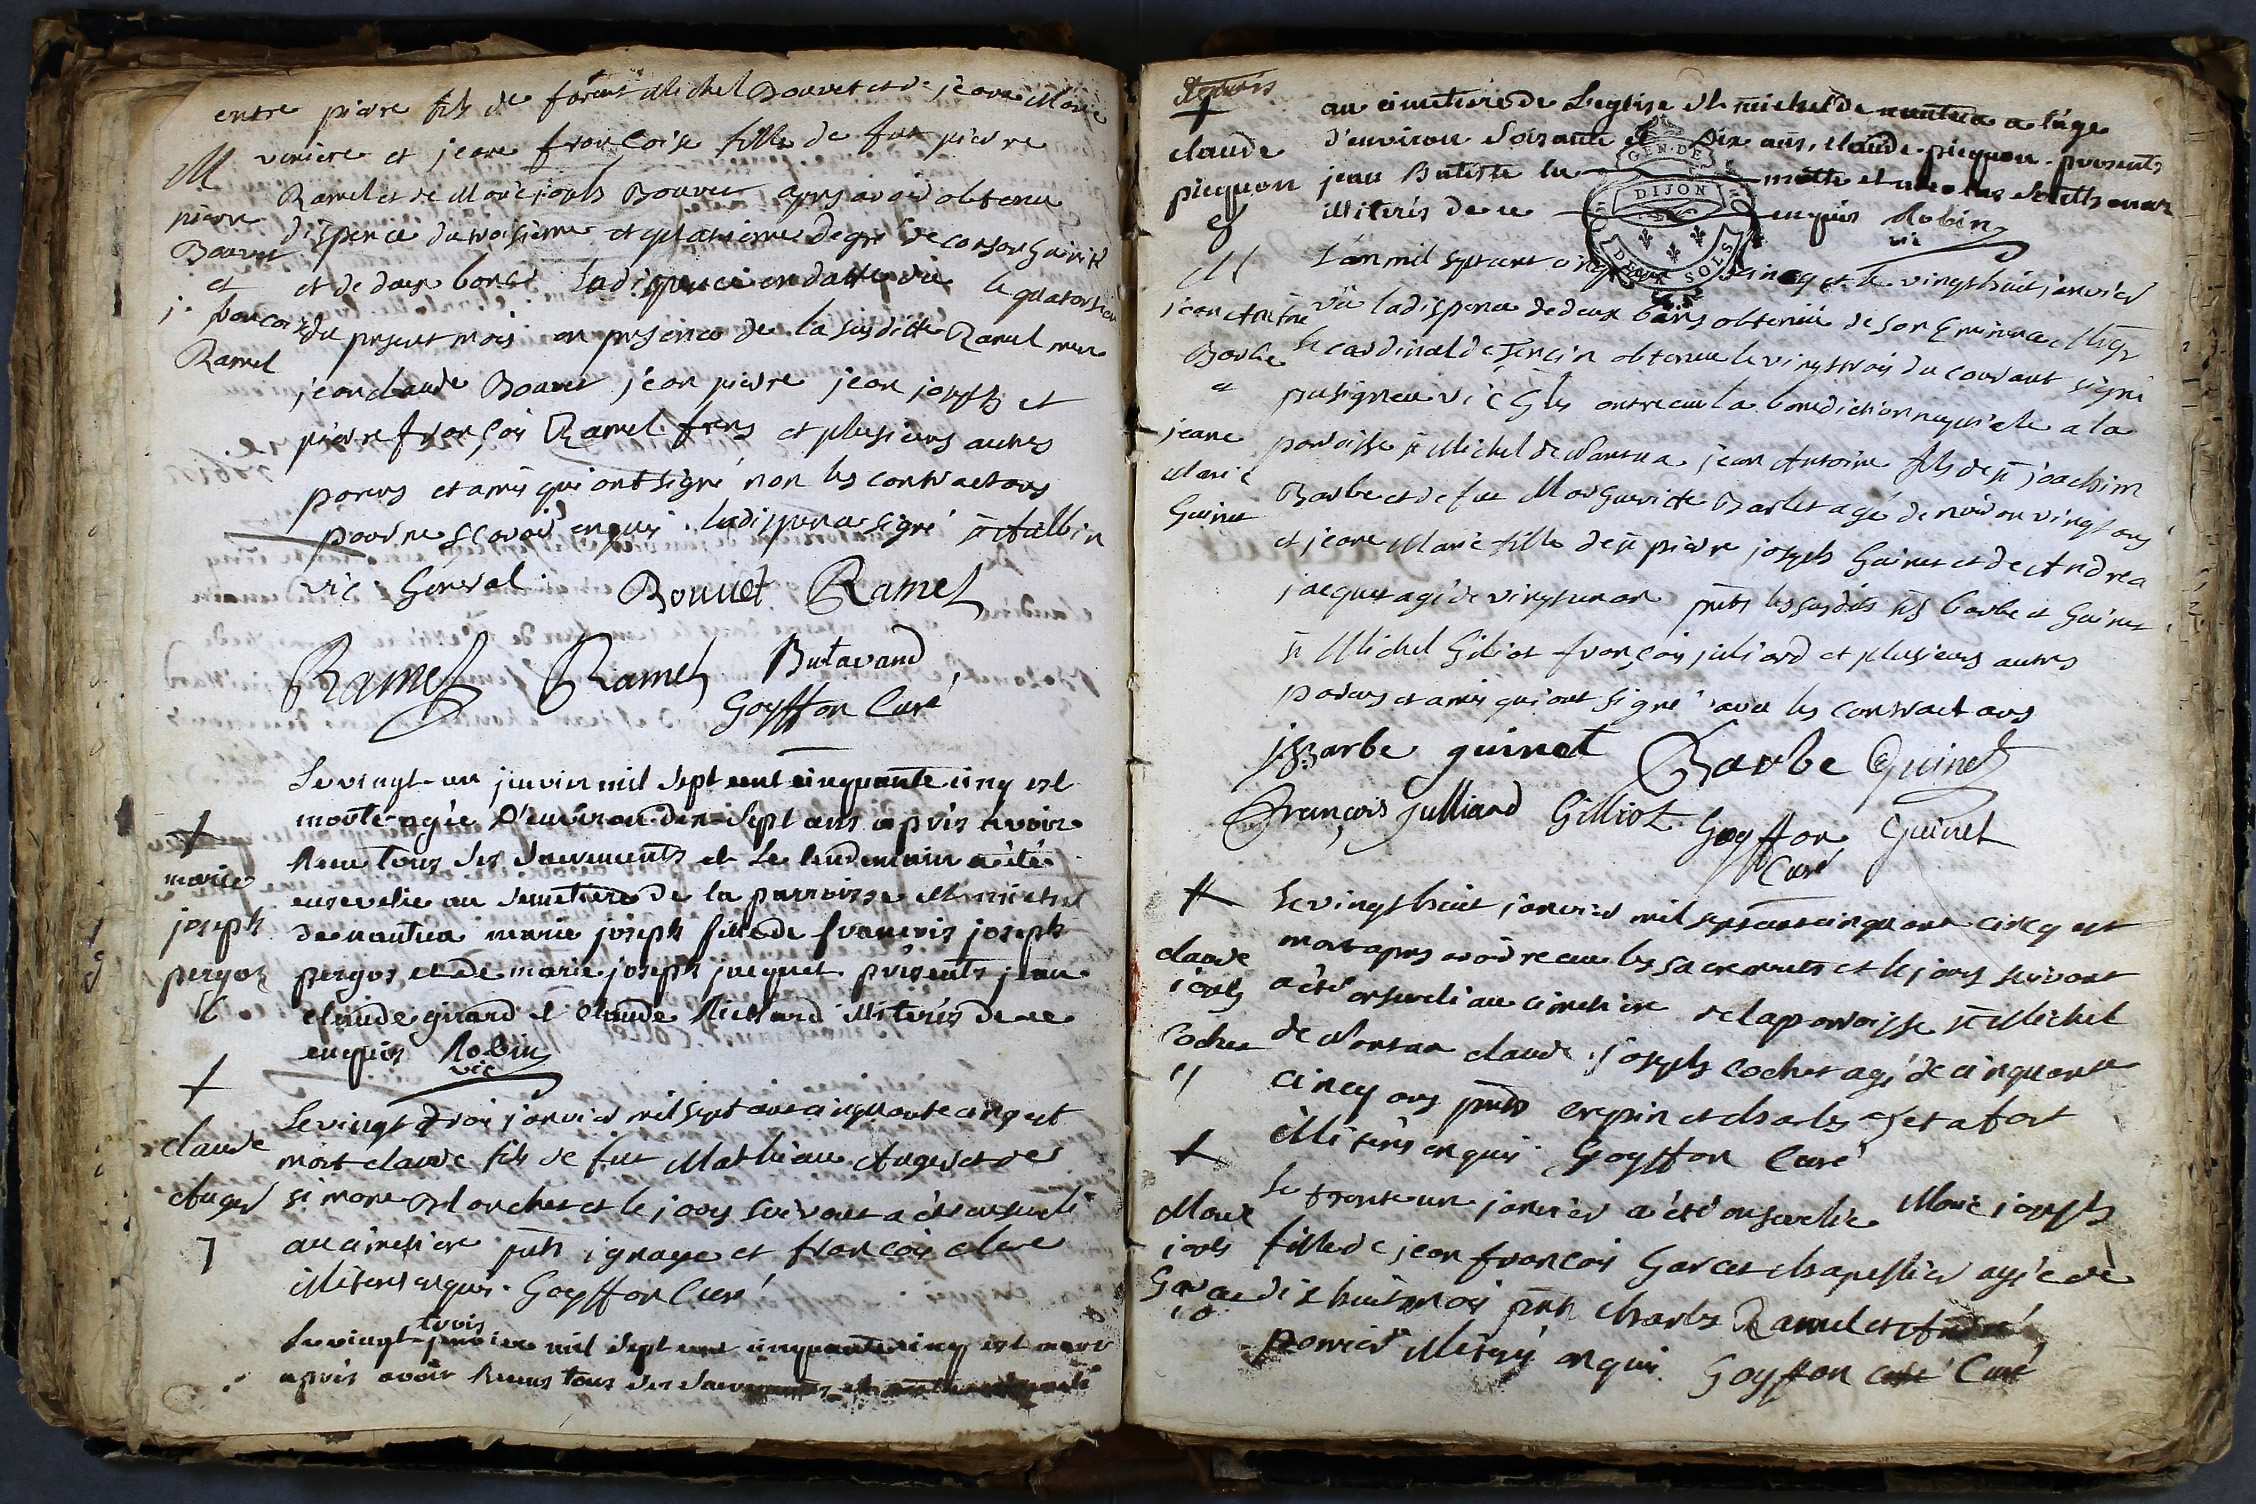 entre pierre fils de Michel Bouvet et de jeane Marie
M
veniere et jeane françoise fille de feu pierre
pierre
Bouvet
et
j. francoise
Ramel
Ramel et de Marie joseph Bouvet apres avoir obtenu
dispence du troisieme et quatrieme degre de consanguinité
et de deux bancs ladispence en datte du le quatorsieme
du present mois en presence de la susditte Ramel mere
jean claude Bouvet jean pierre jean joseph et
pierre françois Ramel freres et plusieurs autres
parens et amis qui ont signé non les contractans
pour ne scavoir enquis. ladispence signé
vic General. Bouuet Ramel
Ramel Ramel Butavand
Goyffon Curé
+
marie
joseph
pergoz
Le vingt-un janvier mil sept cent cinquante cinq est
morte agée d'environ dix-sept ans après avoir
Receu tous ses sacrements et le lendemain a été
ensevelie au semetiere de la parroisse st michel
de nantua marie joseph fille de francois joseph
pergos et de marie joseph jacquet présents jean
claude girard et claude Richard illiterés de ce
enquis Robin
vic
+
claude
Auger
7
Le vingt trois janvier mil sept cent cinquante cinq est
mort claude fils de feu Mathieu Auger et de
simone Blanchet et le jour suivant a été enseveli
au cimetiere pnts ignace et francois
illiteres enquis. Goyffon Curé
trois
Le vingt-janvier mil sept cent cinquante cinq est mort
après avoir Receus tous ses sacrements
+
claude
picquon
8
au cimetiere de L'eglise st michel de nantua a l'age
d'environ soixante et dix ans, claude picquon. presents
jean Batiste la motte et
illiterés de ce enquis Robin
vic
GEN·DE
DIJON
DEUX SOLS
M
jean Antoine
Barbe
et
jeane
Marie
Guinet
L'an mil sept cent cinquante cincq et le vingt huit janvier
vû ladispence de deux bans obtenüe de son Eminence Mgr
le cardinal de Tencin obtenue le vingt trois du courant signé
vic gl ont receu la benediction nuptiale a la
paroisse st Michel de Nantua jean Antoine fils de sr joachim
Barbe et de feu Marguerite Barlet agé de vingt ans
et jeane Marie fille de sr pierre joseph Guinet et de Andrea
jacquet agé de vingt un an pnts les susdits srs barbe et Guinet
sr Michel Giliot françois juliard et plusieurs autres
parens et amis qui ont signé avec les contractans
j Barbe guinet Barbe Guinet
François Julliard Gilliot Goyffon Guinet
Curé
+
claude
josph
Cochet
Le vingt huit janvier mil sept cent cinquante cincq est
mort apres avoir receu les sacrements et le jour suivant
a été enseveli au cimetiere de la paroisse st Michel
de Nantua claude joseph Cochet agé de cinquante
cincq ans pnts crepin et charles
illiterés enquis. Goyffon Curé
+
Marie
josph
Garcet
10
Le trente un janvier a été ensevelie Marie joseph
fille de jean francois Garcet chapellier agée de
dix huit mois pnts charles Ramel et André
illiterés enquis. Goyffon Curé